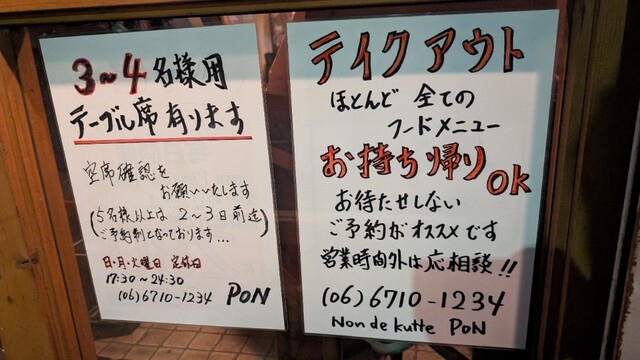 3〜4名様用
テーブル席有ります
空席確認を
お願いいたします
(5名様以上は2〜3日前迄
ご予約制となっております...)
日・月・火曜日 定休日
17:30〜24:30
(06)6710-1234 PoN
テイクアウト
ほとんど 全ての
フードメニュー
お持ち帰りOk
お待たせしない
ご予約がオススメです
営業時間外は応相談!!
(06)6710-1234
Non de kutte PoN